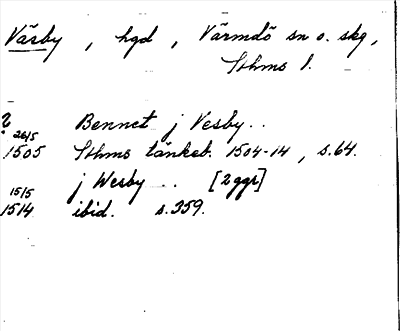 Väsby, hgd, Värmdö sn o. skg,
Sthms l.
Bennet j Vesby..
26/5
1505 Sthms tänkeb. 1504-14, s.64.
j Wesby .. [2 ggr]
15/5
1514 ibid. s.359.